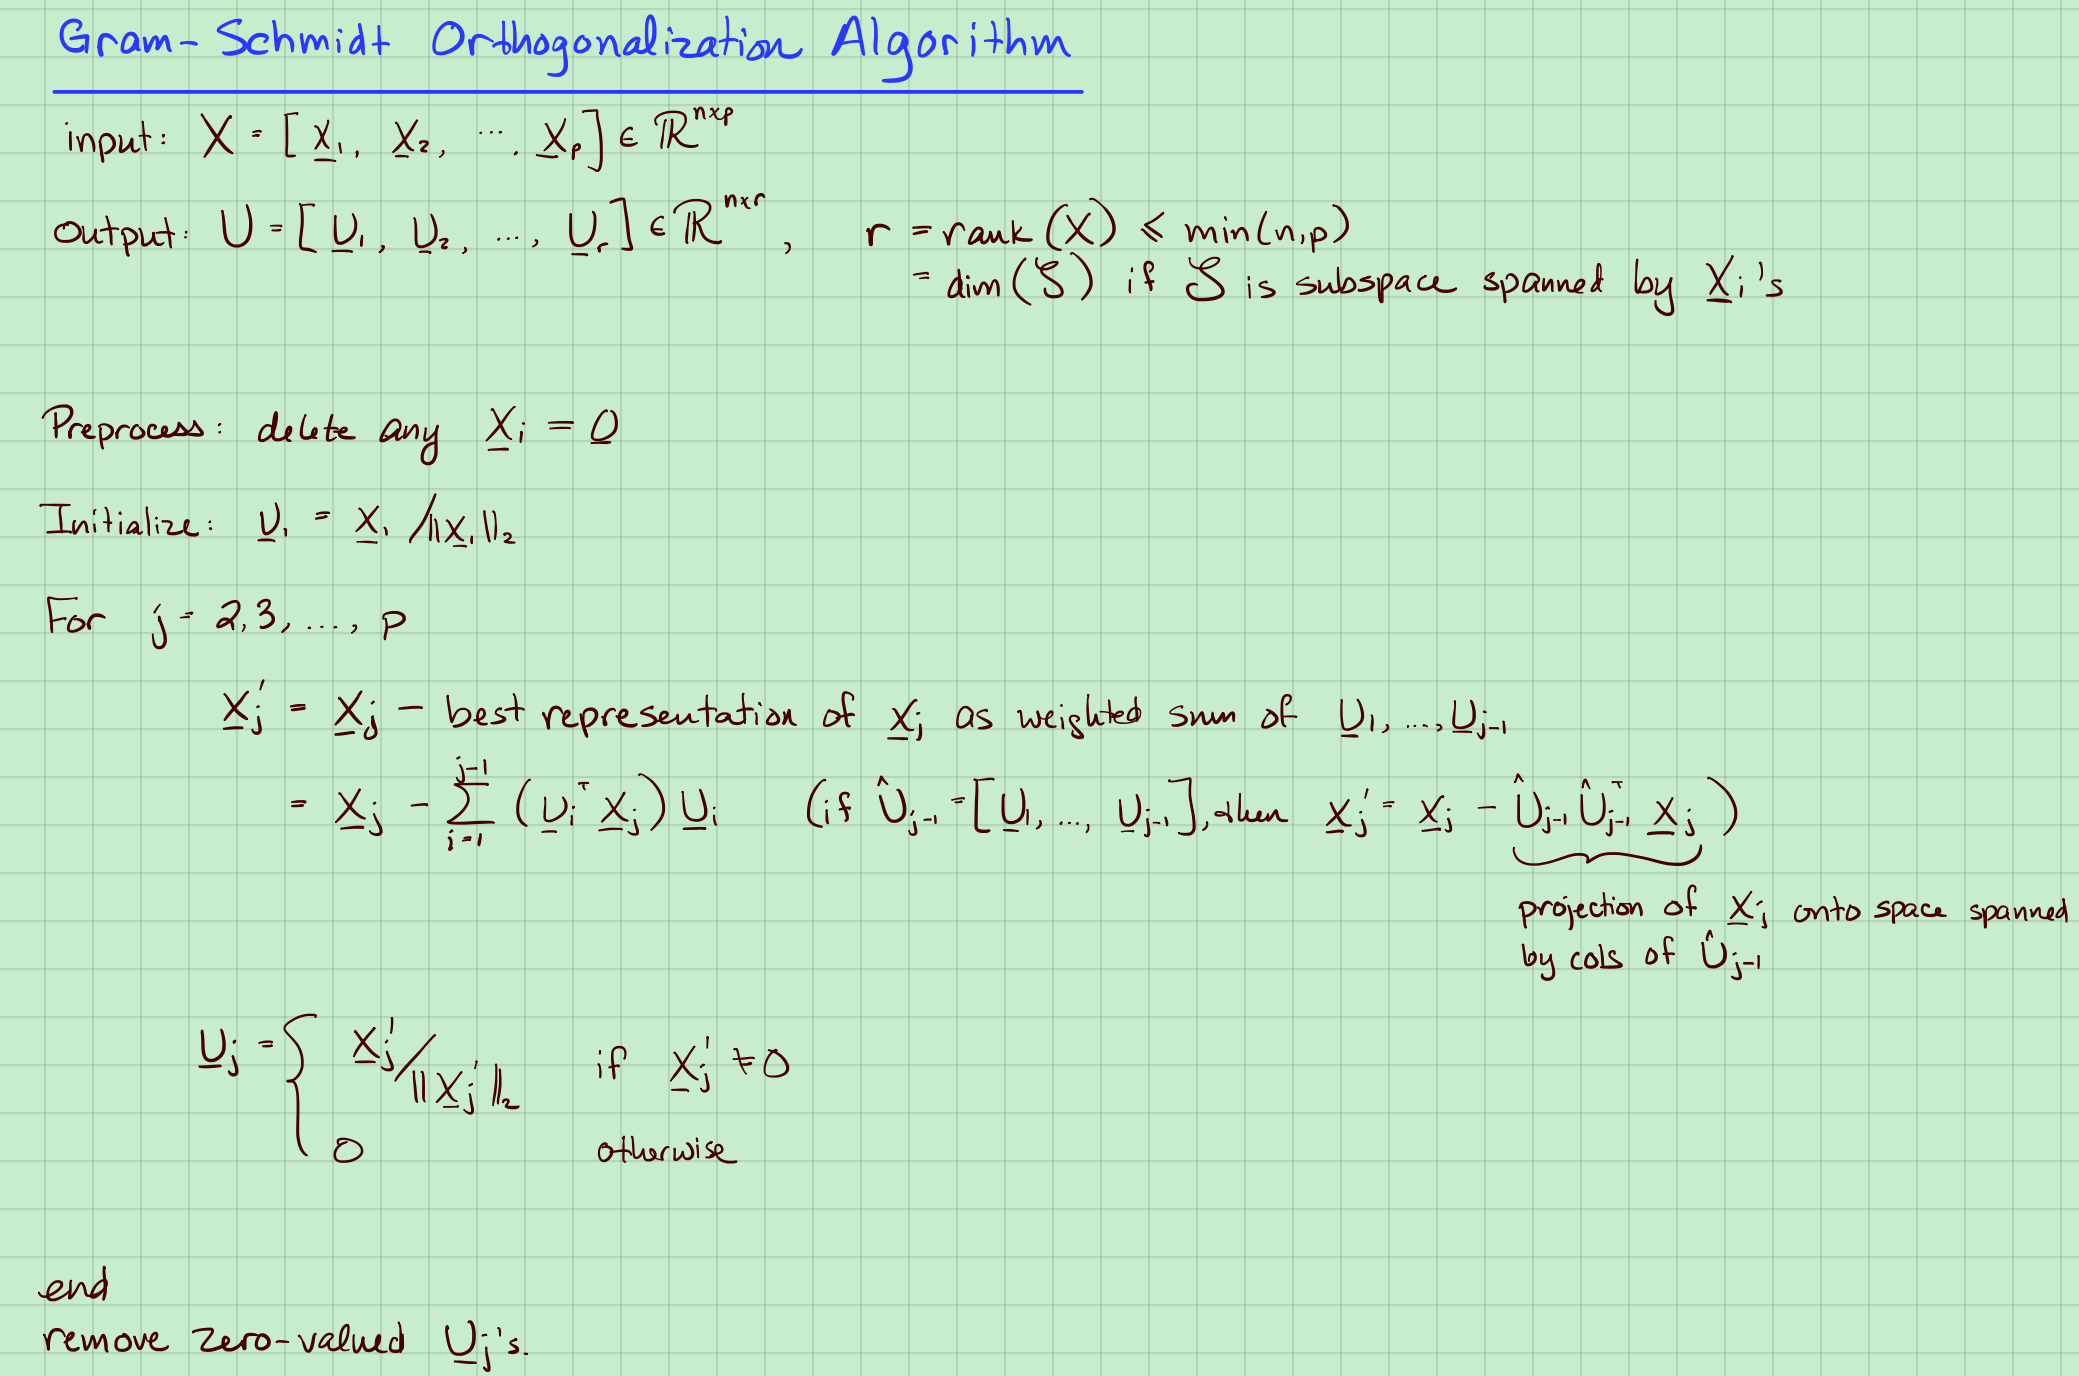 Gram-Schmidt Orthogonalization Algorithm
input: X = [x̲₁, x̲₂, ..., x̲ₚ] ∈ ℝⁿˣᵖ
output: U = [u̲₁, u̲₂, ..., u̲ᵣ] ∈ ℝⁿˣʳ, r = rank(X) ≤ min(n,p)
= dim(S) if S is subspace spanned by x̲ᵢ's
Preprocess: delete any x̲ᵢ = 0̲
Initialize: u̲₁ = x̲₁/‖x̲₁‖₂
For j = 2,3, ..., p
x̲ⱼ' = x̲ⱼ − best representation of x̲ⱼ as weighted sum of u̲₁, ..., u̲ⱼ₋₁
= x̲ⱼ − ∑ᵢ₌₁ʲ⁻¹ (u̲ᵢᵀ x̲ⱼ) u̲ᵢ (if Ûⱼ₋₁ = [u̲₁, ..., u̲ⱼ₋₁], then x̲ⱼ' = x̲ⱼ − Ûⱼ₋₁ Ûⱼ₋₁ᵀ x̲ⱼ)
projection of x̲ⱼ onto space spanned
by cols of Ûⱼ₋₁
u̲ⱼ = { x̲ⱼ'/‖x̲ⱼ'‖₂ if x̲ⱼ' ≠ 0
0 otherwise
end
remove zero-valued u̲ⱼ's.